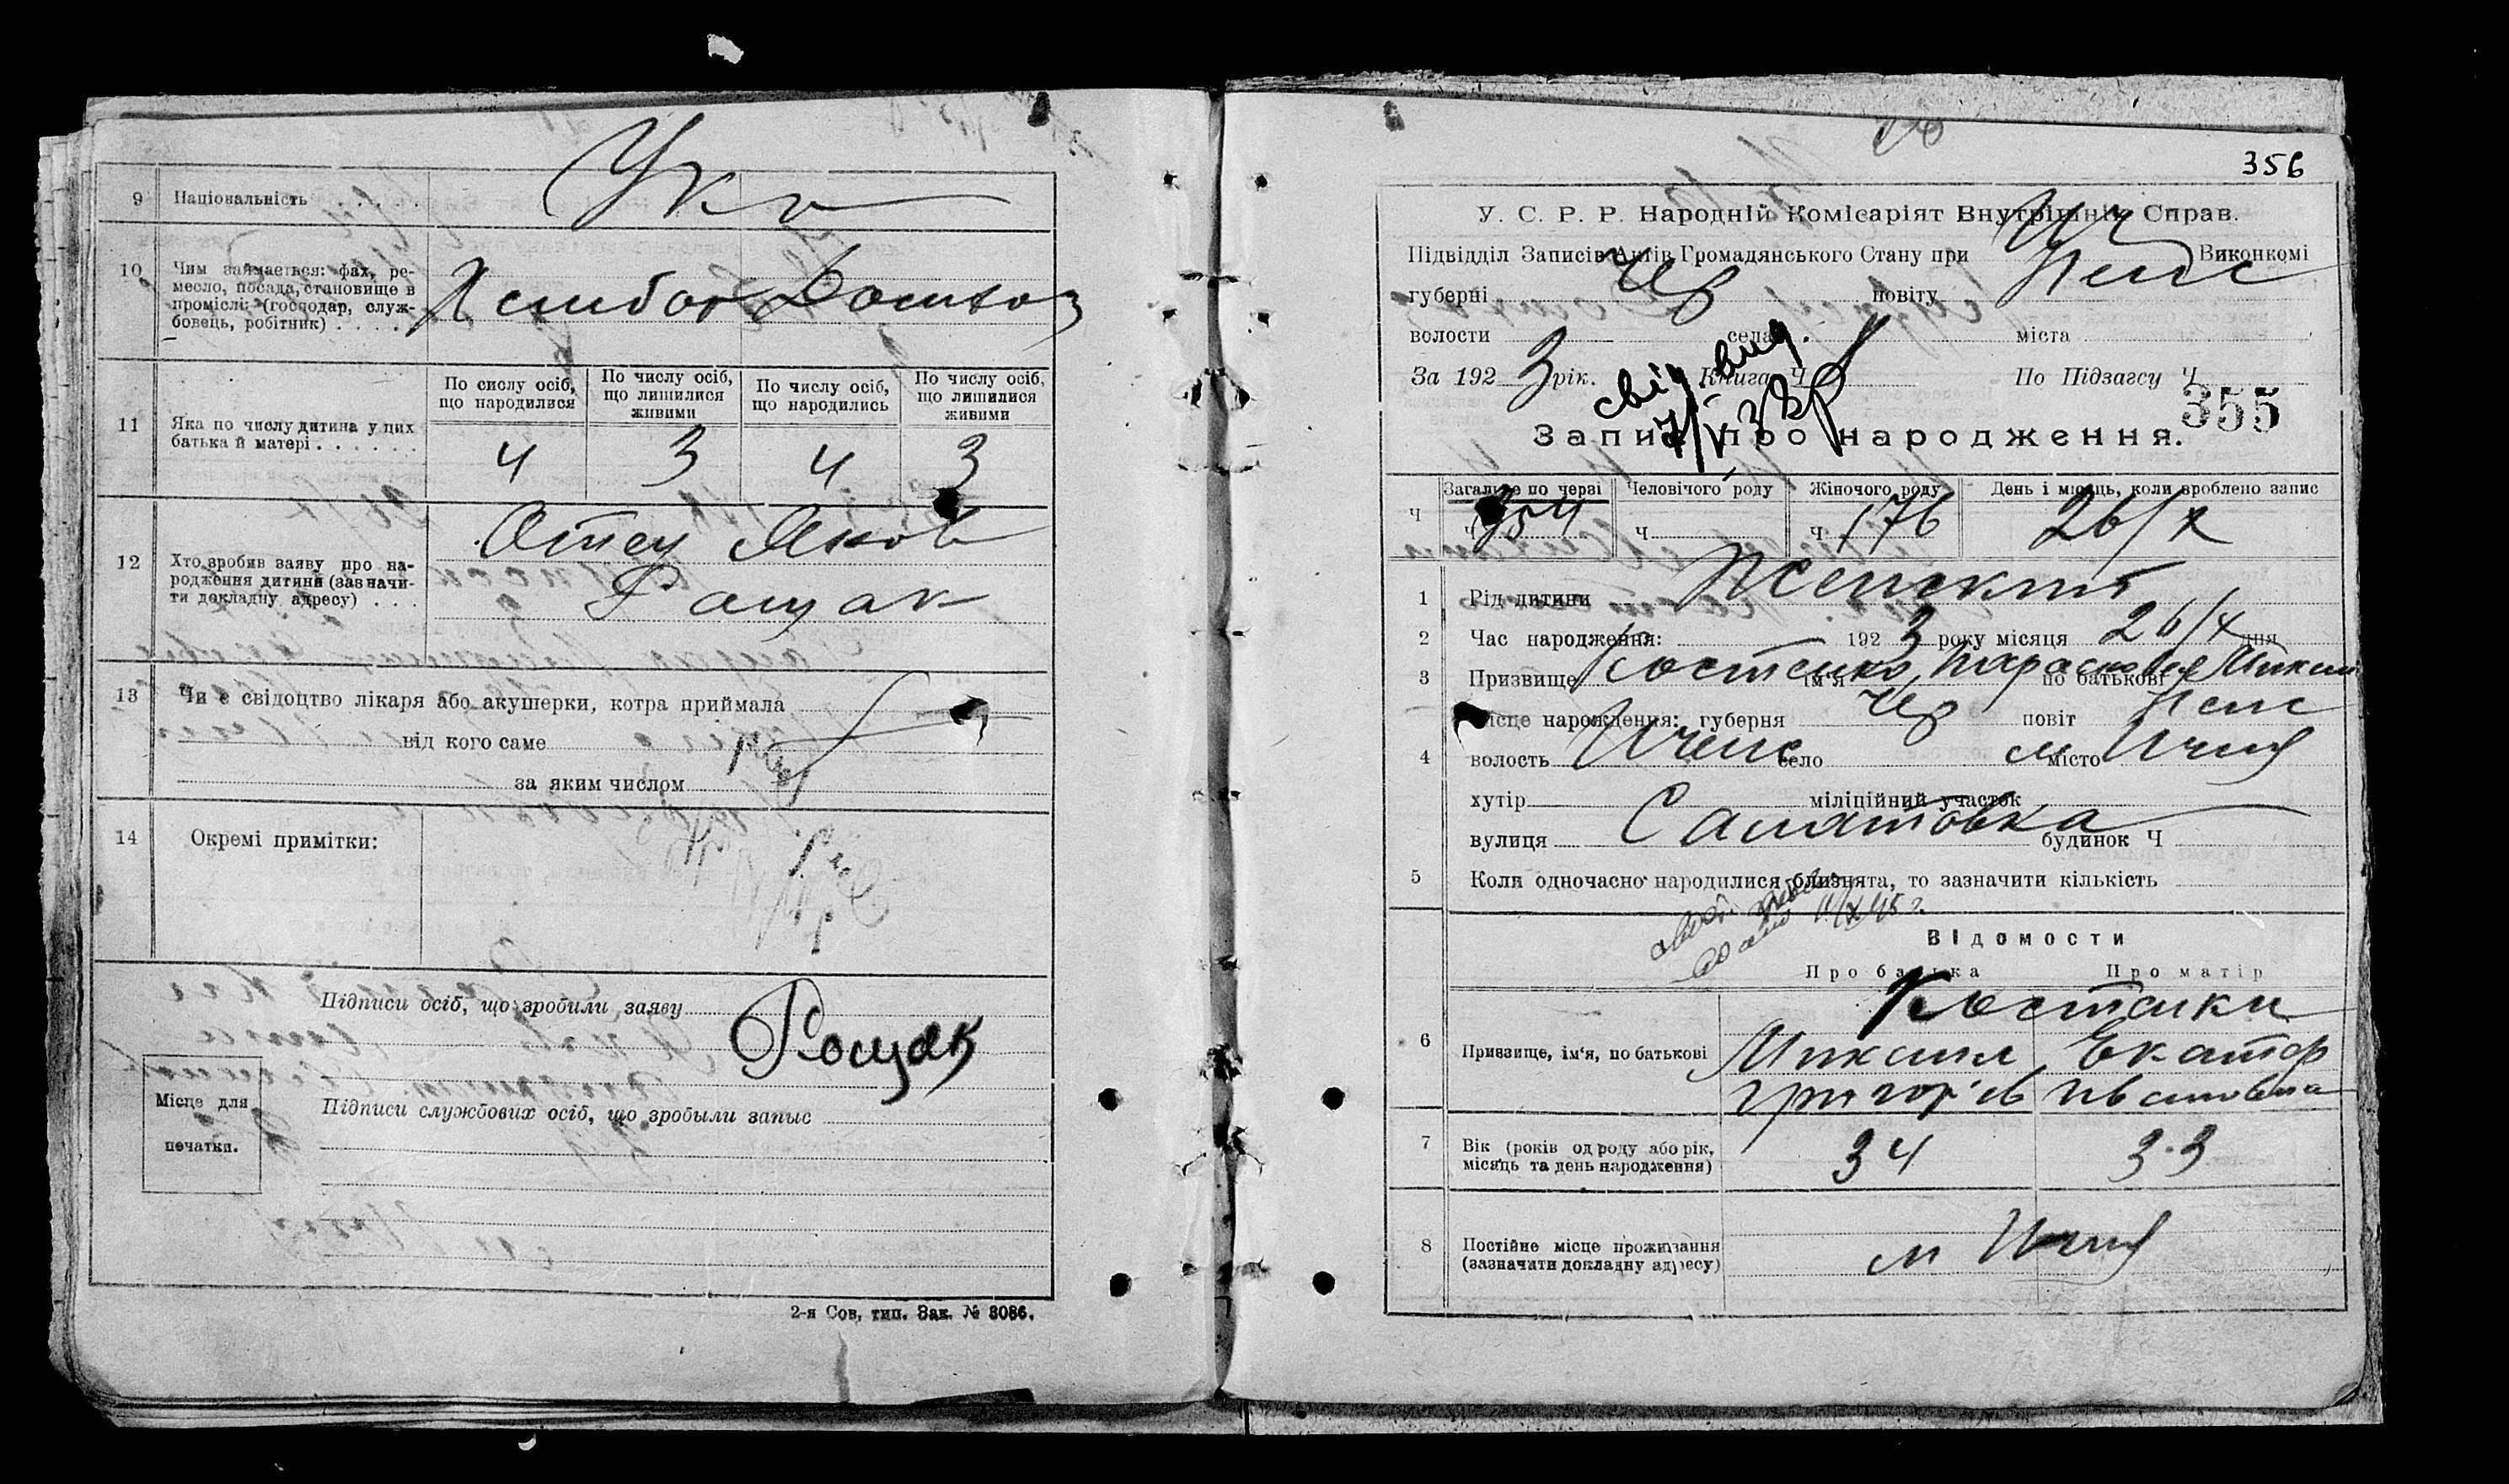 9 Національність
Укр
10 Чим займається: фах, ре-
месло, посада, становище в
промислі: (господар, служ-
бовець, робітник)
Хлибор Домхоз
11 Яка по числу дитина у цих
батька й матері
По сислу осіб, що народилися
По числу осіб, що лишилися живими
По числу осіб, що народились
По числу осіб, що лишилися живими
4 3 4 3
12 Хто зробив заяву про на-
родження дитини (зазначи-
ти докладну адресу)
Отец Яков
Рощак
13 Чи є свідоцтво лікаря або акушерки, котра приймала
від кого саме
за яким числом
14 Окремі примітки:
Підписи осіб, що зробили заяву
Рощак
Підписи службових осіб, що зробыли запыс
Місце для
печатки.
2-я Сов, тип. Зак. № 3086.
356
У. С. Р. Р. Народній Комісаріят Внутрішніх Справ.
Підвідділ Записів Актів Громадянського Стану при Ич Виконкомі
губерні Чер повіту Неж
волости села міста
За 192 3 рік. Книга Ч По Підзагсу Ч
свід. вид.
355
Запис про народження.
Загальне по черзі
Человічого роду
Жіночого роду
День і місяць, коли зроблено запис
Ч Ч 354 Ч Ч 176 26/X
1 Рід дитини Женский
2 Час народження: 192 3 року місяця 26/X дня
3 Призвище Костенко ім'я Параскева по батькові Михаил
4 Місце народження: губерня Чер повіт Неж
волость Ичен село м місто Ичня
хутір міліційний участок
вулиця будинок Ч
5 Коли одночасно народилися близнята, то зазначити кількість
Відомости
Про батька Про матір
Костенки
6 Призвище, ім'я, по батькові Михаил Екатер
Григор'ев Ивановна
7 Вік (років од роду або рік,
місяць та день народження)
34 33
8 Постійне місце проживання
(зазначити докладну адресу)
м Ичня